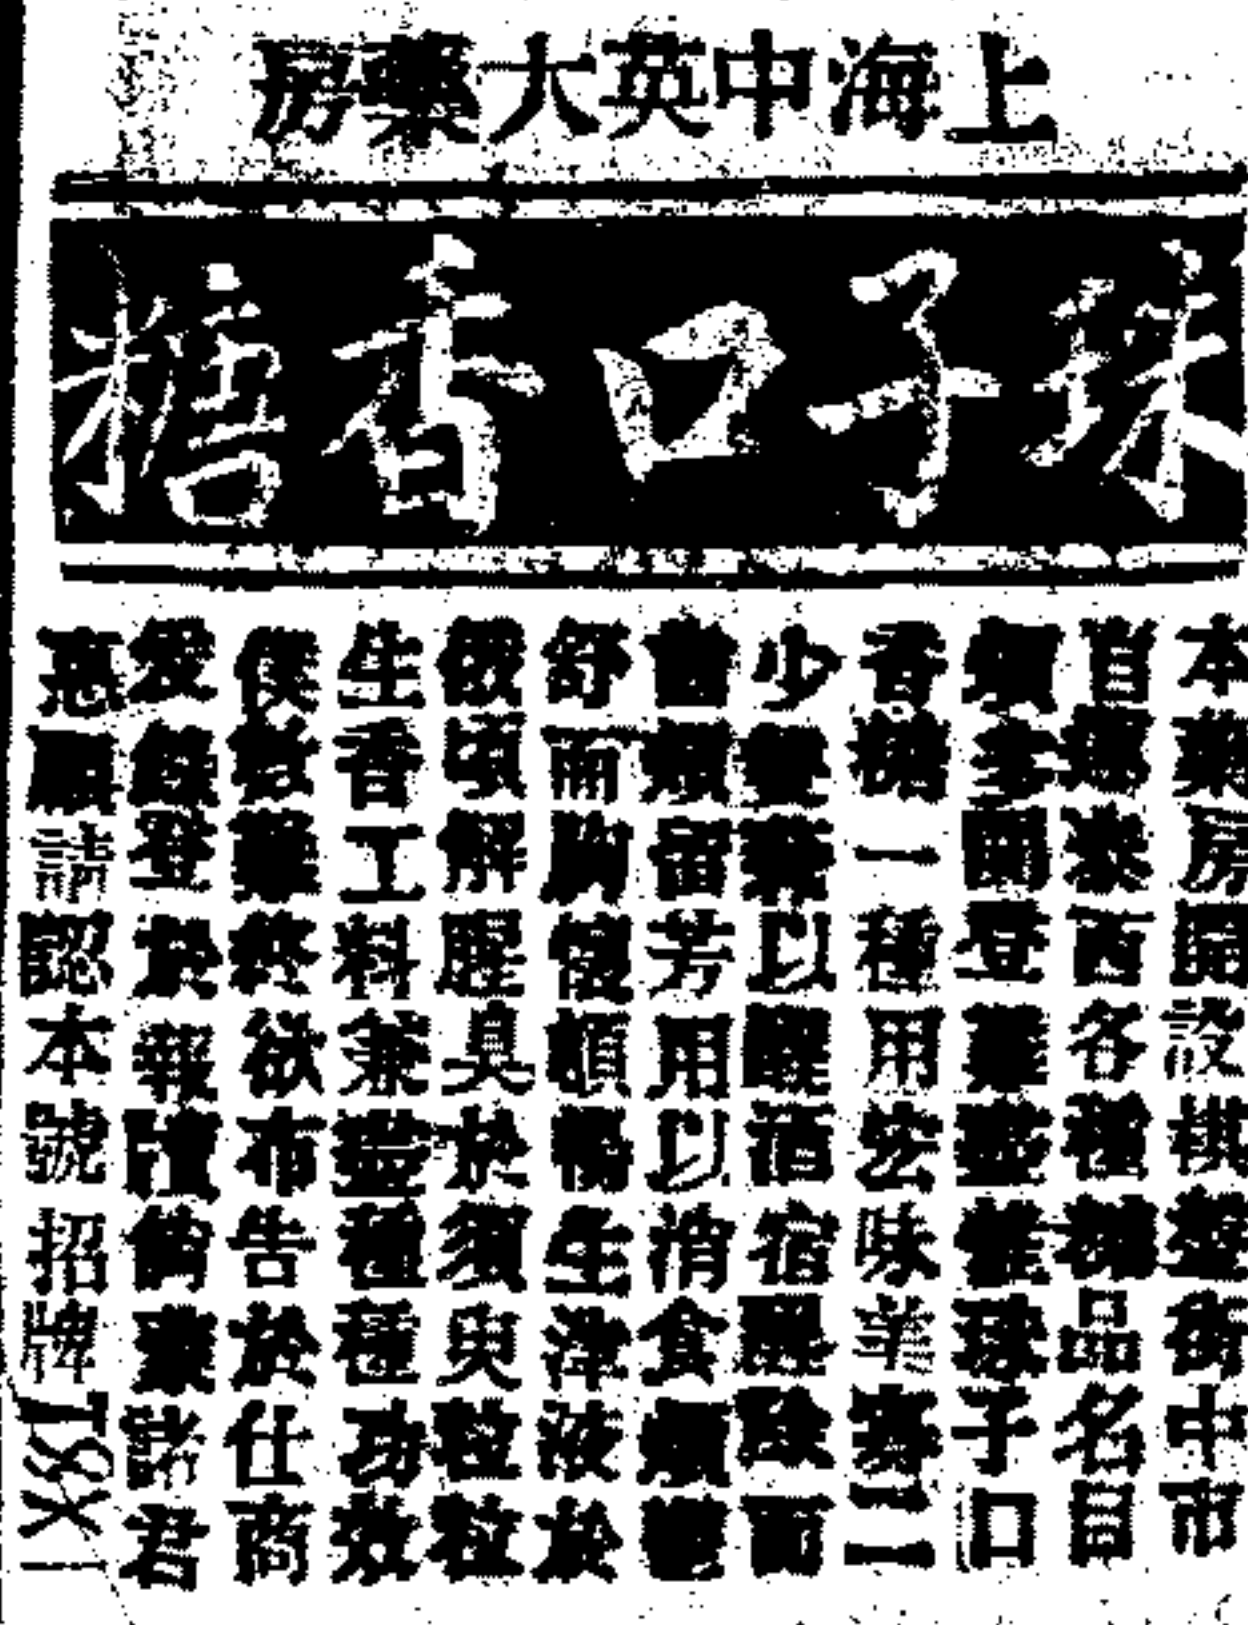 上海中英大藥房
珠子口香糖
本藥房開設棋盤街中市
自運泰西各種物品名目
類多開登難盡惟珠子口
香糖一種用法味美第二
少量兼以醒酒宿醒酸而
齒頰留芳用以消食煩鬱
舒而胸懷頓暢生津液於
俄頃解腥臭於須臾粒粒
生香工料兼盡種種功效
僕數難終欲布告於仕商
爰錄登於報 倘蒙諸君
惠顧請認本號招牌